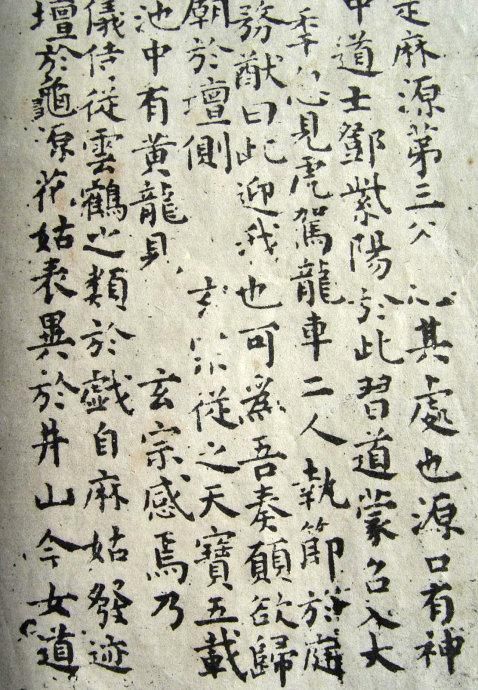 是麻源第三其處也源口有神
中道士鄧紫陽於此習道蒙召入大
年忽見虎駕龍車二人執節於庭
務猷曰此迎我也可為吾奏願欲歸
廟於壇側玄宗從之天寶五載
池中有黃龍見玄宗感焉乃
儀侍從雲鶴之類於戲自麻姑發迹
壇於龜源花姑表異於井山今女道